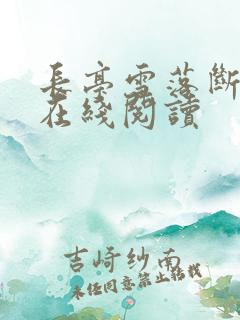 長亭雪落斷
在綫閱讀
吉崎紗南
未經同意禁止轉載